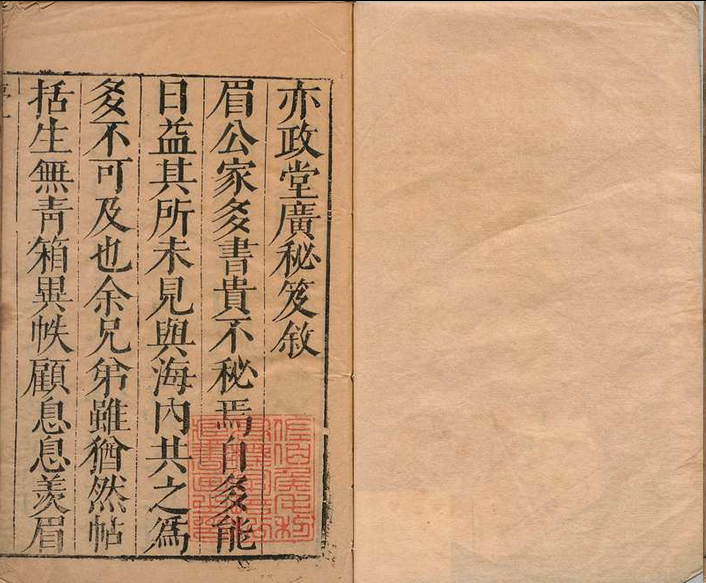 亦政堂廣秘笈敘
眉公家多書貴不秘焉自多能
日益其所未見與海內共之爲
多不可及也余兄弟雖猶然帖
括生無靑箱異帙顧息息羨眉